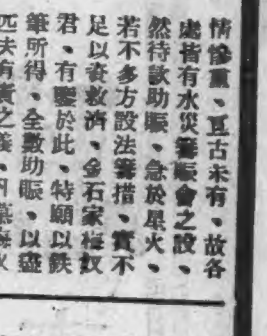 情慘重、亘古未有、故各
處皆有水災籌賑會之設、
然待欵助賑、急於星火、
若不多方設法籌措、實不
足以資救濟、金石家梅奴
君、有鑒於此、特願以鉄
筆所得、全數助賑、以盡
匹夫有責之義、